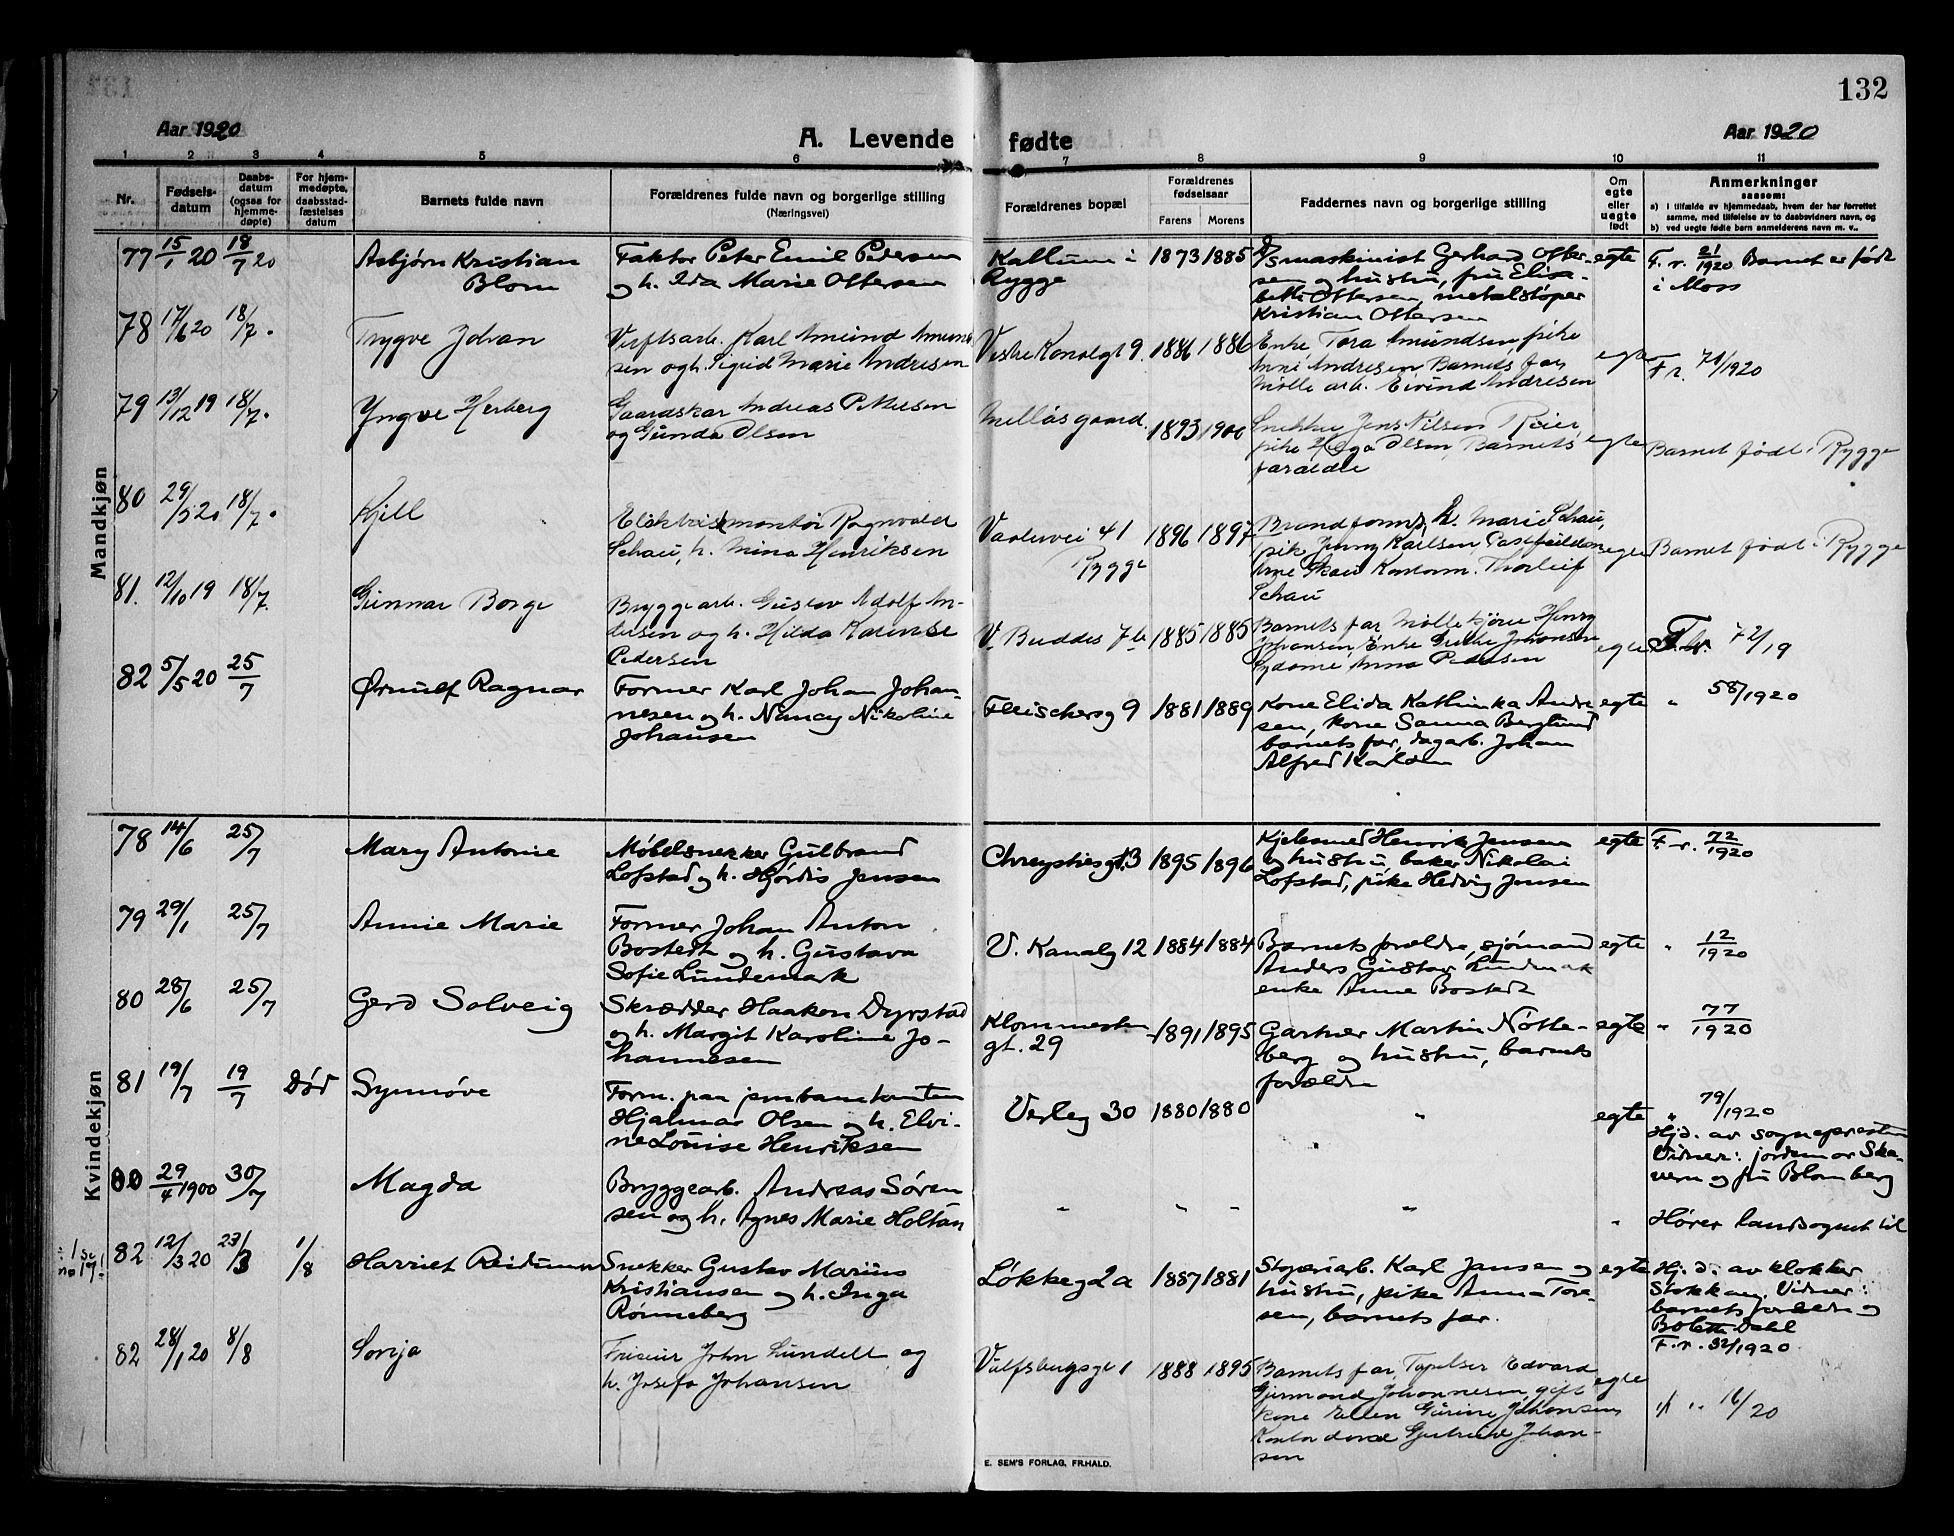 132
Aar 1920
A. Levende fødte
Aar 1920
1 2 3 4 5 6 7 8 9 10 11
Nr.
Fødsels-
datum
Daabs-
datum
(ogsaa for
hjemme-
døpte)
For hjem-
medøpte,
daabsstad-
fæstelses
datum
Barnets fulde navn
Forældrenes fulde navn og borgerlige stilling
(Næringsvei)
Forældrenes bopæl
Forældrenes
fødselsaar
Farens Morens
Faddernes navn og borgerlige stilling
Om
egte
eller
uegte
født
Anmerkninger
saasom:
a) i tilfælde av hjemmedaab, hvem der har forrettet
samme, med tilføielse av to daabsvidners navn, og
b) ved uegte født barn anmelderens navn m. v..
Mandkjøn
77 15/1 20 18/7 20
Asbjørn Kristian
Blom
Faktor Peter Emil Pedersen
og h. Ida Marie Ottersen
Kallum i
Rygge
1873 1885
maskinist Gerhard Otter-
sen og hustru, fru Elisa-
beth Ottersen, metalstøper
Kristian Ottersen
egte
F. r. 21/1920 Barnet er født
i Moss
78 17/6 20 18/7.
Trygve Johan
Verftsarb. Karl Amund Amund-
sen og h. Sigrid Marie Andresen
Vestre Kanalgt 9.
1886 1886
Enke Tora Amundsen, pike
Andresen, Barnets far,
Mølle arb. Eivind Andresen
egte
F r. 71/1920
79 13/12 19 18/7.
Yngve Herberg
Gaardskar Andreas Pettersen
og Gunda Olsen
Mellösgaard
1893 1900
Snekker Jens Nilsen Reier,
pike Helga Olsen, Barnets
foraldre
egte
Barnet født i Rygge
80 29/5 20 18/7.
Kjell
montör Ragnvald
Schau, h. Mina Henriksen
Vaalervei 41
Rygge
1896 1897
h. Marie Schau,
pike Jenny Karlsen,
Thorleif
Schau
egte
Barnet født i Rygge
81. 12/10 19 18/7.
Gunnar Borge
Bryggearb. Gustav Adolf An-
dersen og h. Hilda Karense
Pedersen
V. Buddes 7b
1885 1885
Barnets far, Henry
Johansen, Enke Johansen
Anna Pedersen
egte
F. r. 72/19
82 5/5 20 25/7
Ørnulf Ragnar
Former Karl Johan Johan-
nesen og h. Nancy Nikoline
Johansen
Fleischersg 9
1881 1889
Kone Elida Kathinka Andre
sen, kone Sanna Berglund
barnets far, dagarb. Johan
Alfred Karlsen
egte
" 58/1920
Kvindekjøn
78 14/6 25/7
Mary Antonie
Møbelsnekker Gulbrand
Lofstad og h. Hjördis Jensen
Chrystiesgt 3
1895 1896
Kjelesmed Henrik Jensen
og hustru, baker Nikolai
Lofstad, pike Hedvig Jensen
egte
F. r. 72/1920
79 29/1 25/7
Annie Marie
Former Johan Anton
Bostedt og h. Gustava
Sofie Lundemark
V. Kanalg 12
1884 1884
Barnets forældre, sjømand
Anders Gustav Lundmak
enke Anne Bostedt
egte
" 12/1920
80 28/6 25/7
Gerd Solveig
Skrædder Haakon Dyrstad
og h. Margit Karoline Jo-
hannesen
Klommesten
gt. 29
1891 1895
Gartner Martin Nötte-
berg og hustru, barnets
forældre
egte
" 77/1920
81 19/7 19/7 Död
Synnöve
Form. paa jernbanetomten
Hjalmar Olsen og h. Elvi-
ne Louise Henriksen
Verleg 30
1880 1880
"
egte
" 79/1920
Hjd. av sognepresten
Vidner: jordmor Ska-
vern og fru Blomberg
00 29/4 1900 30/7
Magda
Bryggearb. Andreas Sören
sen og h. Agnes Marie Holtan
" " " " "
Hører landsognet til
82 12/3 20 23/3 1/8
Harriet Reidunn
Snekker Gustav Marius
Kristiansen og h. Inga
Rønneberg
Løkkeg 2a
1887 1881
Støperiarb. Karl Jensen og
hustru, pike Anna Tore-
sen, barnets far.
egte
Hj. d. av klokker
Stokkan, Vidner:
barnets forældre og
Bolette Dahl
F. r. 32/1920
82 28/1 20 8/8
Sonja
Friseur John Lundell og
h. Josefa Johansen
Vulfsbergsgt 1
1888 1895
Barnets far, Edvard
Gjermond Johannesen, gift
kone Ellen Gurine Johansen,
Kontordame Gjertrud Johan-
sen
egte
16/20
E. SEM'S FORLAG, FR.HALD.